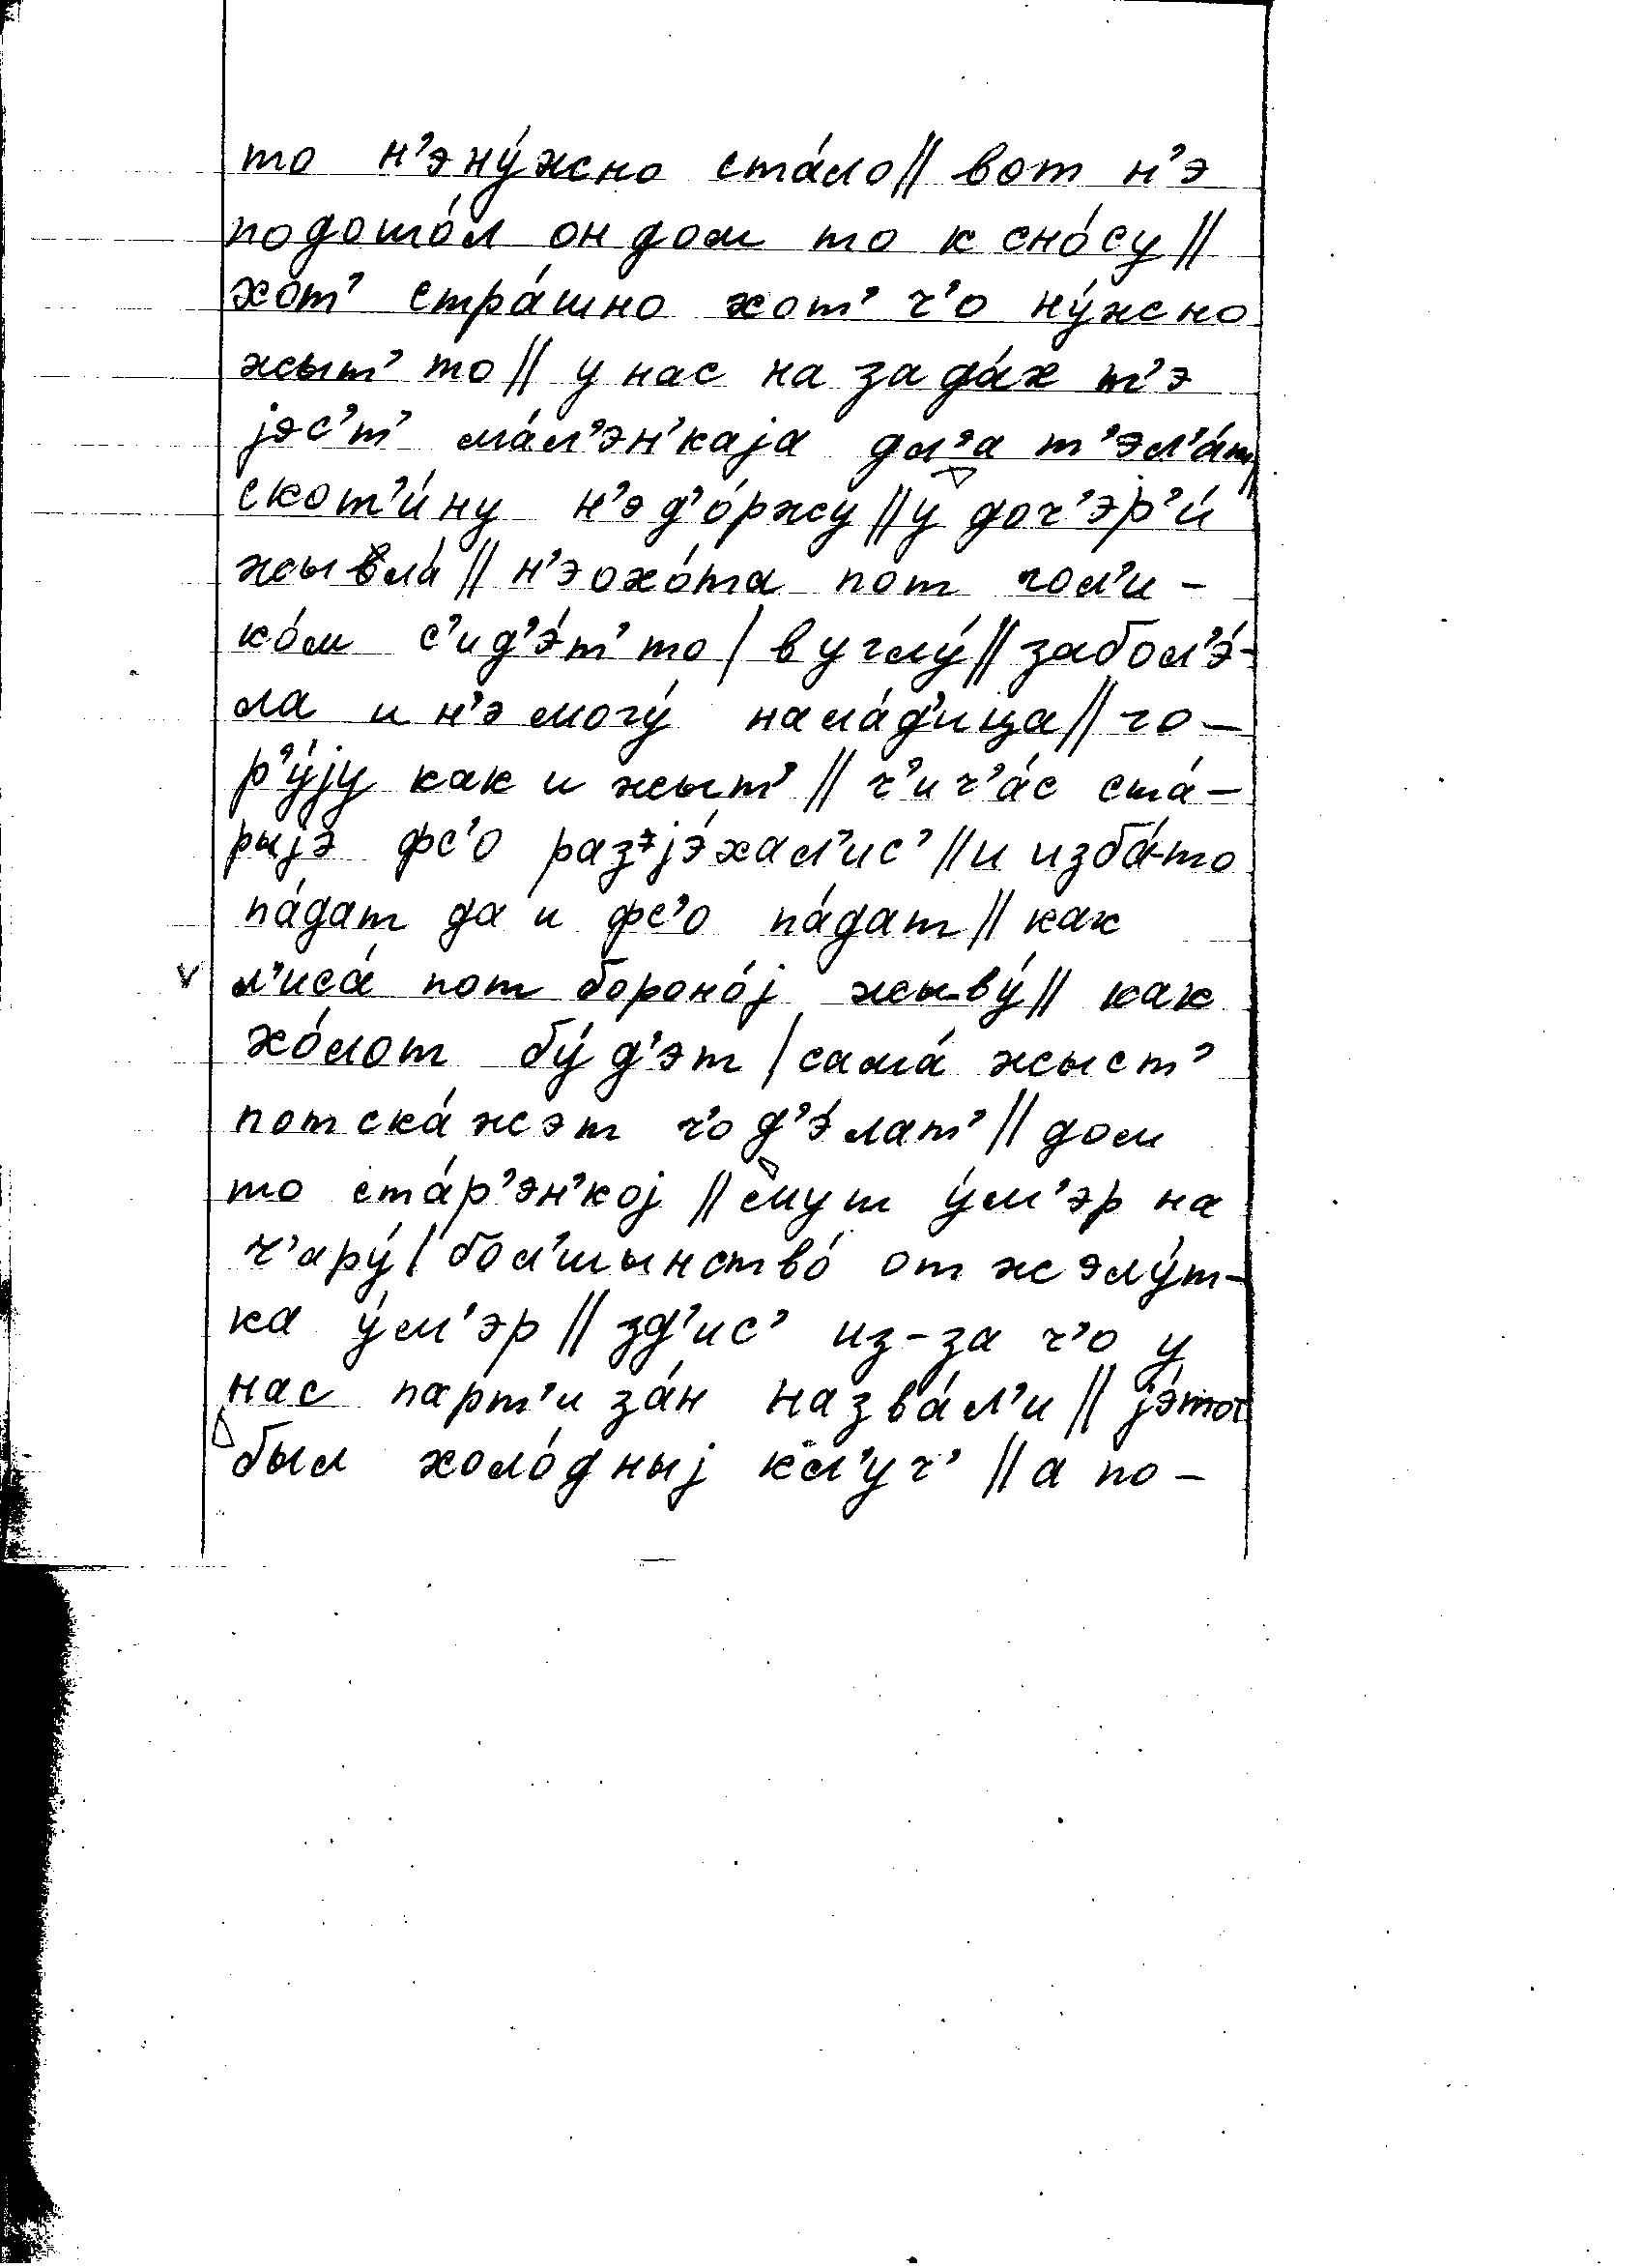 то н’эну́жно ста́ло || вот н’э
подошо́л он дом то к сно́су ||
хот’ стра́шно хот’ ч’о ну́жно
жыт’ то || у нас на зада́х т’э
jэс’т’ ма́л’эн’каjа дл’а т’эл’а́т ||
скот’и́ну н’э д’о́ржу || у доч’эр’и́
жывла́ || н’эохо́та пот гол’и-
ко́м с’ид’э́т’ то | в углу́ || забол’э́-
ла и н’э могу́ нала́д’ица || го-
р’у́jу как и жыт’ || ч’ич’а́с ста́-
рыjэ фс’о разjэ́хал’ис’ || и изба́-то
па́дат да и фс’о па́дат || как
л’иса́ пот бороно́j жыву́ || как
хо́лот бу́д’эт | сама́ жыст’
потска́жэт ч’о д’э́лат’ || дом
то ста́р’эн’коj || мут у́м’эр на
ч’ару́ | бол’шынство́ от жэлу́т-
ка у́м’эр || зд’ис’ из-за ч’о у
нас парт’иза́н назва́л’и || jэ́тот
был холо́дныj кл’уч’ || а по-